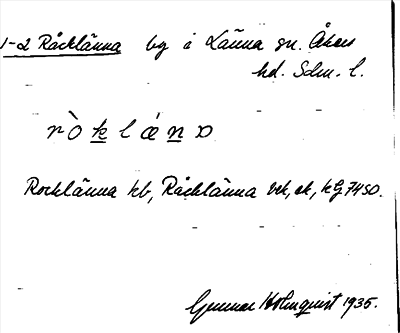 1-2 Råcklänna by i Länna sn. Åkers
hd. Sdm. l.
rò k l ǽ n ɒ
Rocklänna kb, Råcklänna vk, ek, kG 7450.
Gunnar Holmquist 1935.